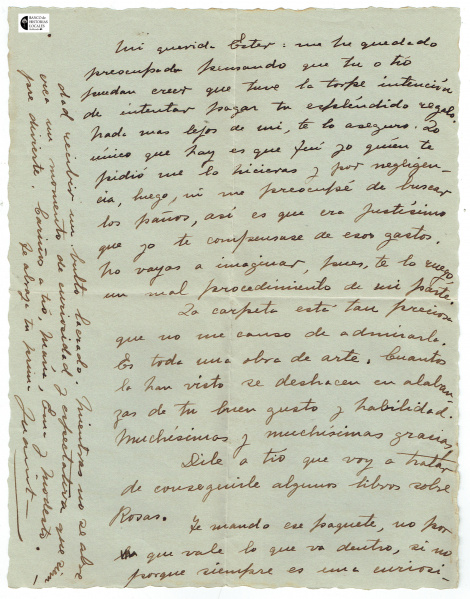 BANCO de
HISTORIAS
LOCALES
Mi querida Ester: me he quedado
preocupada pensando que tu o tío
puedan creer que tuve la torpe intención
de intentar pagar tu espléndido regalo.
Nada mas lejos de mi, te lo aseguro. Lo
único que hay es que fuí yo quién te
pidió me la hicieras y por negligen-
cia, luego, ni me preocupé de buscar
los paños, así es que era justísimo
que yo te compensase de esos gastos.
No vayas a imaginar, pues, te lo ruego,
un mal procedimiento de mi parte.
La carpeta está tan preciosa
que no me canso de admirarla.
Es toda una obra de arte. Cuantos
la han visto se deshacen en alaban-
zas de tu buen gusto y habilidad.
Muchísimas y muchísimas gracias,
Dile a tío que voy a tratar
de conseguirle algunos libros sobre
Rosas. Te mando ese paquete, no por
que vale lo que va dentro, si no
porque siempre es una curiosi-
dad recibir un bulto lacrado. Mientras no se abre
crea un momento de curiosidad y expectativa que siem
pre divierte. Cariños a tío, Mana, Ema y Modesto.
Te abraza tu prima Juanita